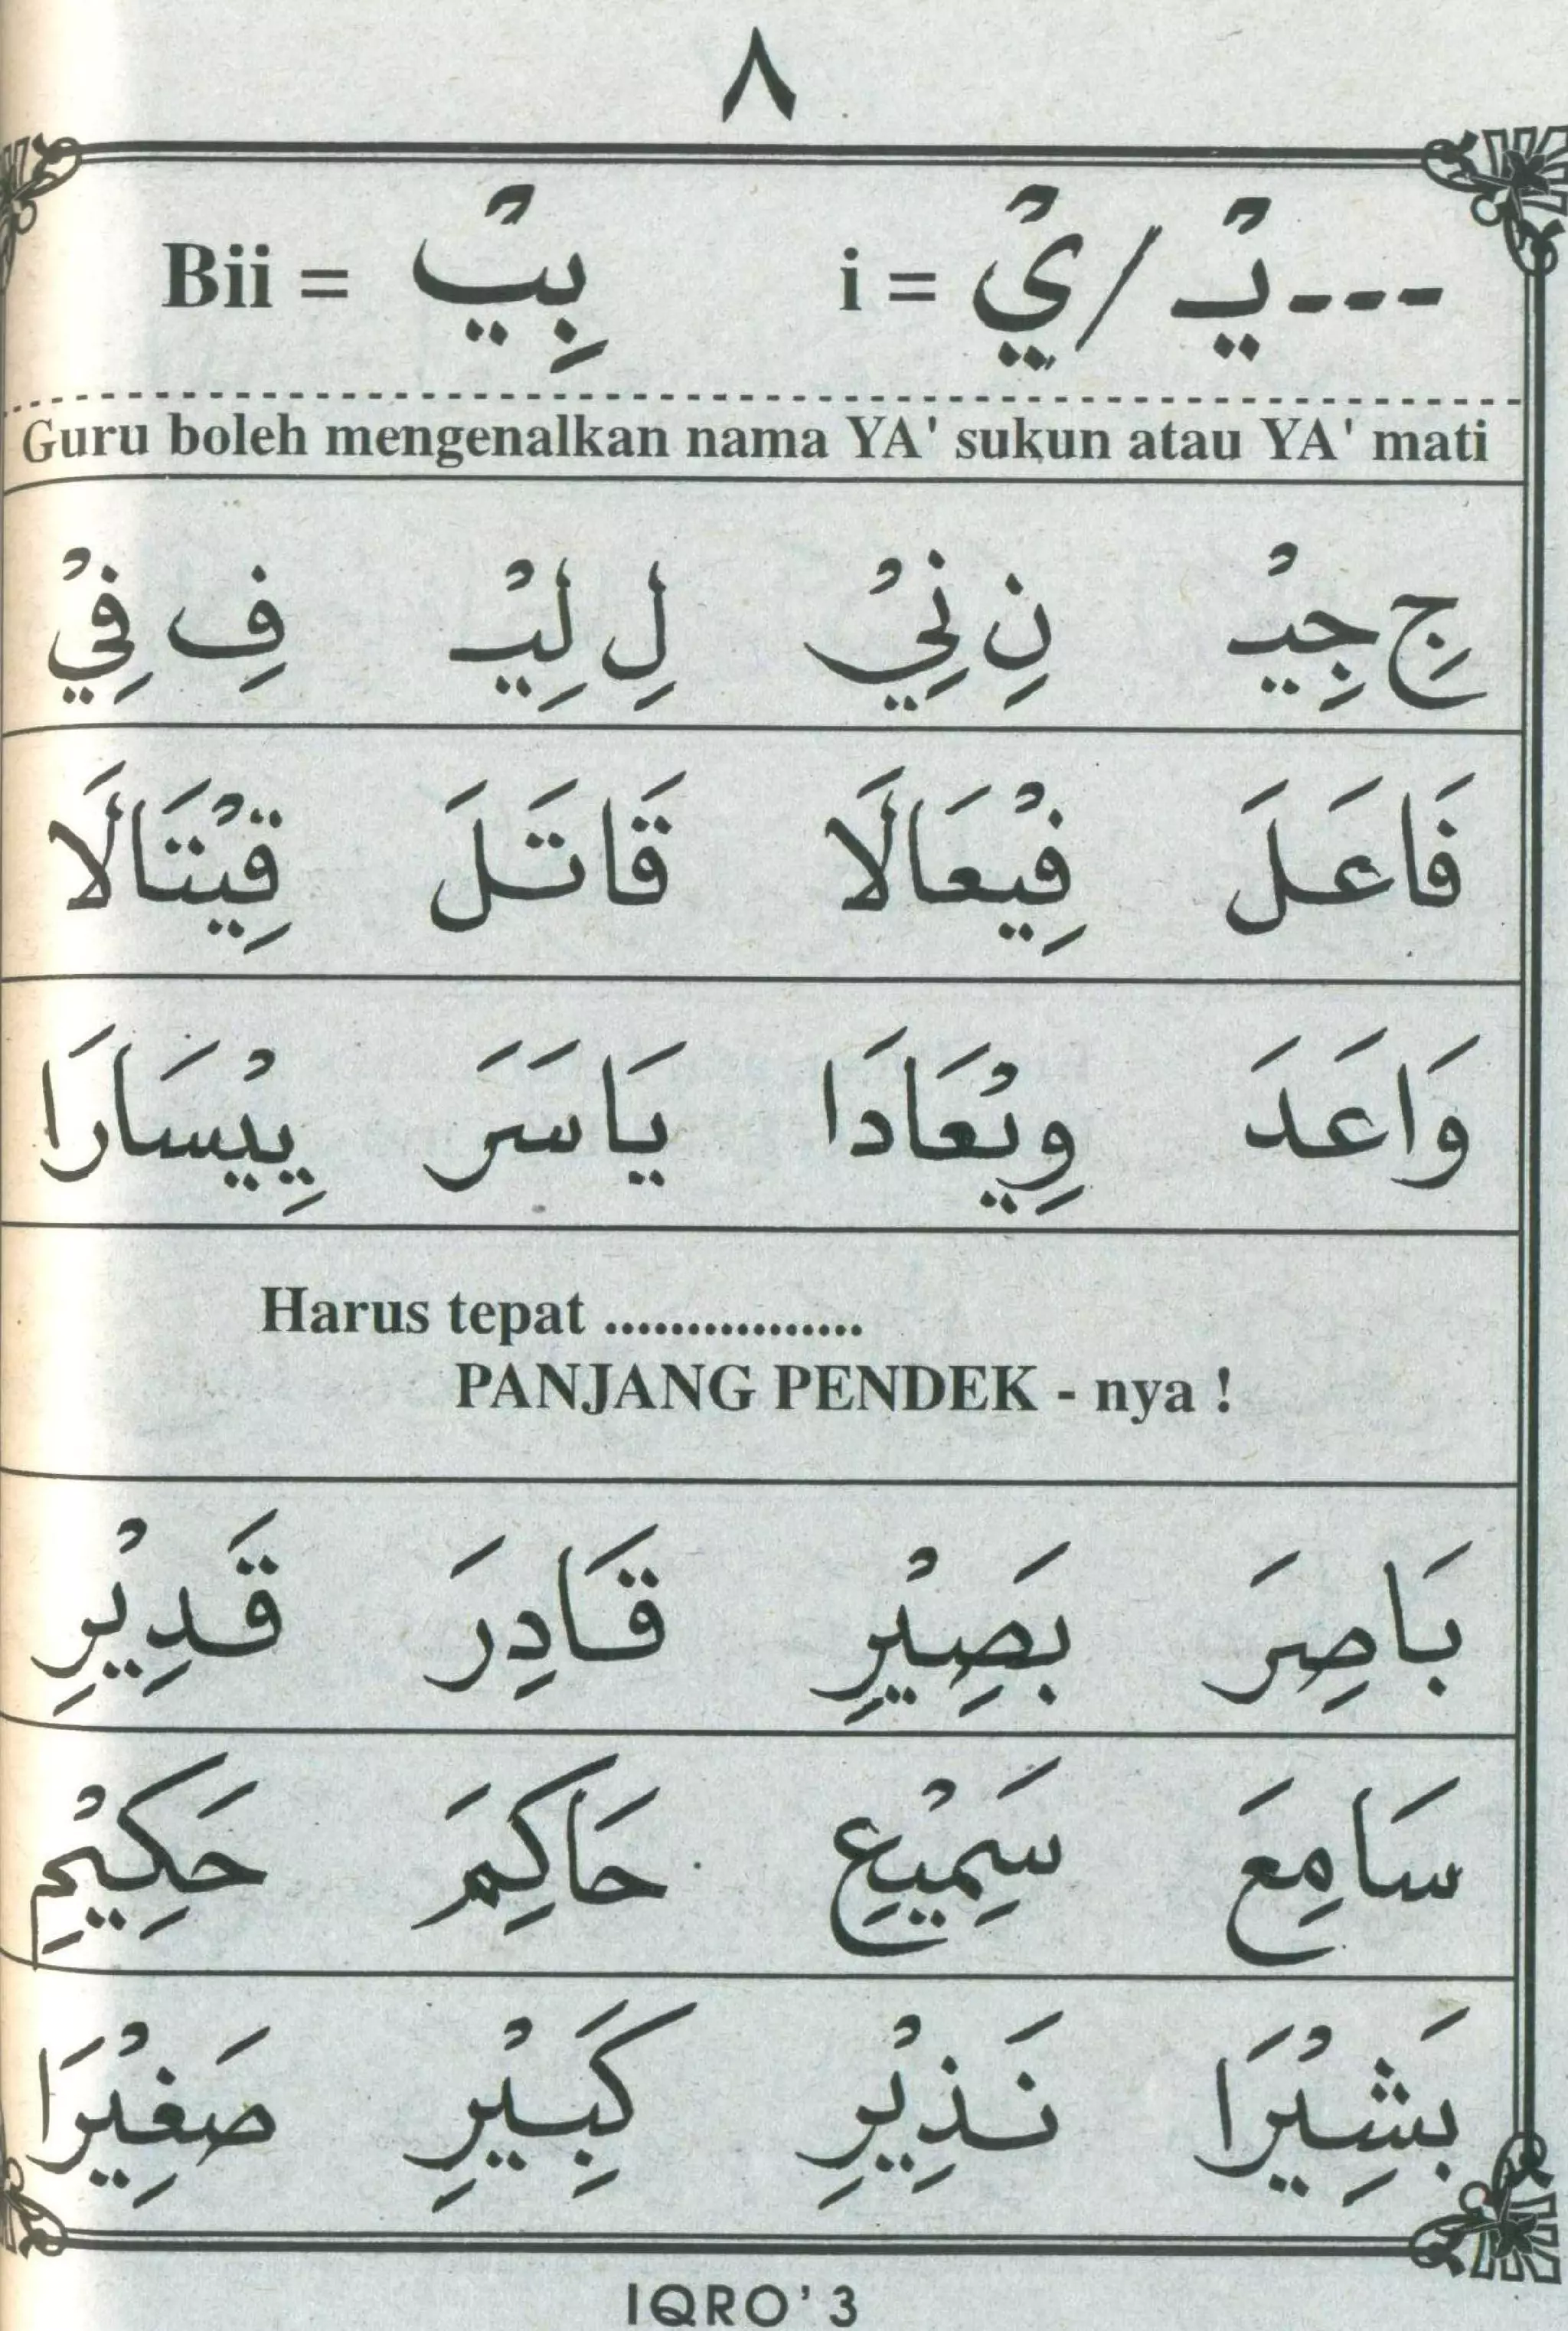 ٨
---يْـ / يْ = i بِيْـ = Bii
Guru boleh mengenalkan nama YA' sukun atau YA' mati
جِ جِيْـ نِ نِيْ لِ لِيْـ فِ فِيْ
فَاعَلَ فِيْعَالَا قَاتَلَ قِيْتَالَا
وَاعَدَ وِيْعَادَا يَاسَرَ يِيْسَارَا
Harus tepat ................
PANJANG PENDEK - nya !
بَاصِرَ بَصِيْرِ قَادِرَ قَدِيْرِ
سَامِعَ سَمِيْعِ حَاكِمَ حَكِيْمِ
بَشِيْرَا نَذِيْرِ كَبِيْرِ صَغِيْرَا
IQRO' 3